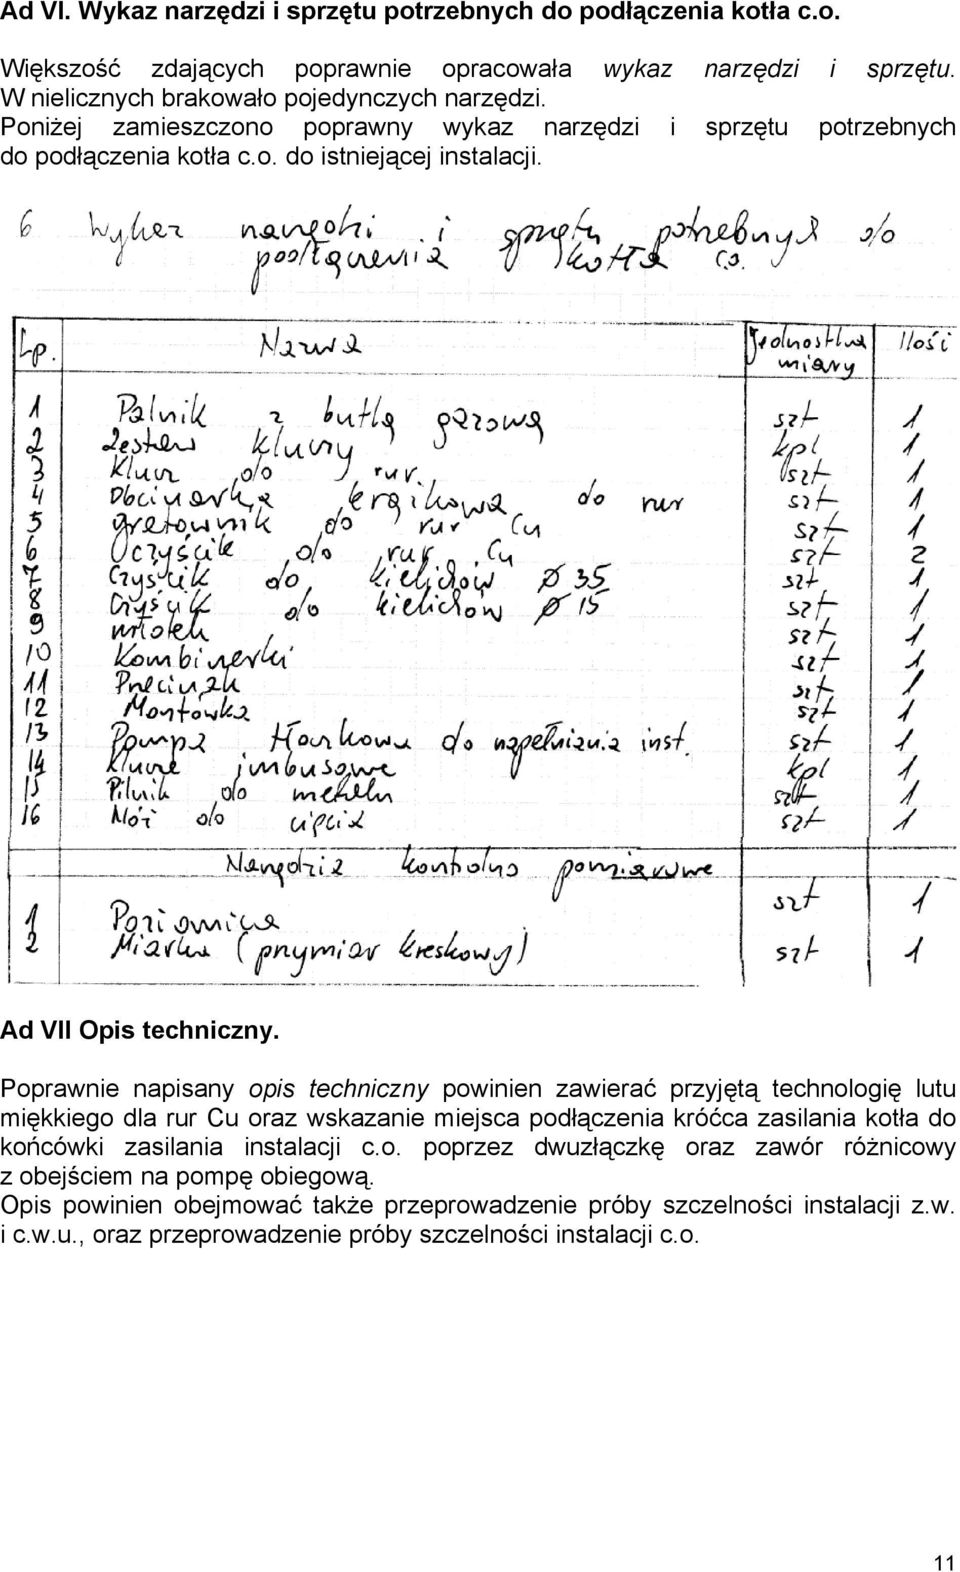 Ad VI. Wykaz narzędzi i sprzętu potrzebnych do podłączenia kotła c.o.
Większość zdających poprawnie opracowała wykaz narzędzi i sprzętu.
W nielicznych brakowało pojedynczych narzędzi.
Poniżej zamieszczono poprawny wykaz narzędzi i sprzętu potrzebnych
do podłączenia kotła c.o. do istniejącej instalacji.
6 Wykaz narzędzi i sprzętu potrzebnych do
podłączenia kotła c.o.
Lp. Nazwa Jednostka miary Ilości
1 Palnik z butlą gazową szt 1
2 Zestaw kluczy kpl 1
3 Klucz do rur. szt 1
4 Obcinarka krążkowa do rur szt 1
5 gratownik do rur Cu szt 1
6 Oczyścik do rur Cu szt 2
7 Czyścik do kielichów Ø 35 szt 1
8 Czyścik do kielichów Ø 15 szt 1
9 młotek szt 1
10 Kombinerki szt 1
11 Przecinak szt 1
12 Montówka szt 1
13 Pompa tłokowa do napełniania inst. szt 1
14 Klucze imbusowe kpl 1
15 Pilnik do metalu szt 1
16 Nóż do cięcia szt 1
Narzędzia kontrolno pomiarowe
1 Poziomica szt 1
2 Miarka (przymiar kreskowy) szt 1
Ad VII Opis techniczny.
Poprawnie napisany opis techniczny powinien zawierać przyjętą technologię lutu
miękkiego dla rur Cu oraz wskazanie miejsca podłączenia króćca zasilania kotła do
końcówki zasilania instalacji c.o. poprzez dwuzłączkę oraz zawór różnicowy
z obejściem na pompę obiegową.
Opis powinien obejmować także przeprowadzenie próby szczelności instalacji z.w.
i c.w.u., oraz przeprowadzenie próby szczelności instalacji c.o.
11